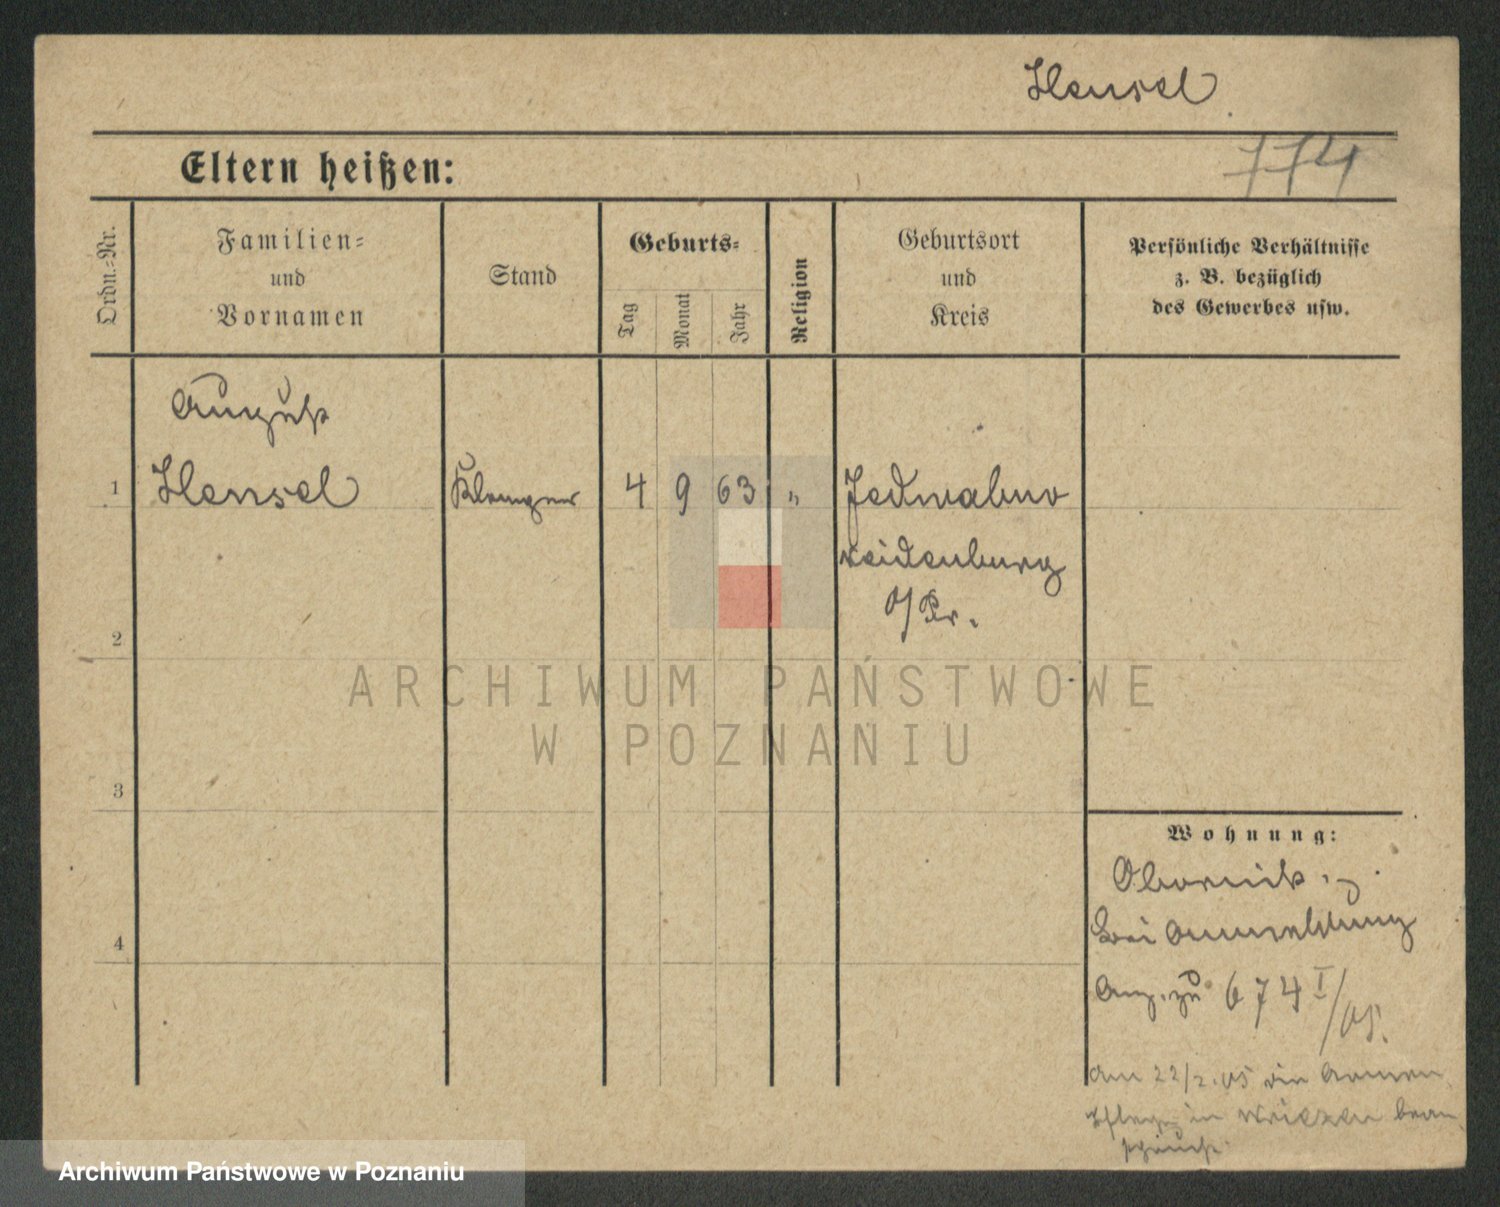 Hensel
774
Eltern heißen:
Ordn.-Nr.
Familien-
und
Vornamen
Stand
Geburts-
Tag
Monat
Jahr
Religion
Geburtsort
und
Kreis
Persönliche Verhältnisse
z. B. bezüglich
des Gewerbes usw.
August
1 Hensel Klempner 4 9 63 " Jedwabno
Neidenburg
O/Pr.
2
ARCHIWUM PAŃSTWOWE
W POZNANIU
3
Wohnung:
Obornik
bei Anmeldung
4
Anz. zu 674 I/05.
Am 22/2.05 die Armen
pflege in Wriezen bean
sprucht.
Archiwum Państwowe w Poznaniu